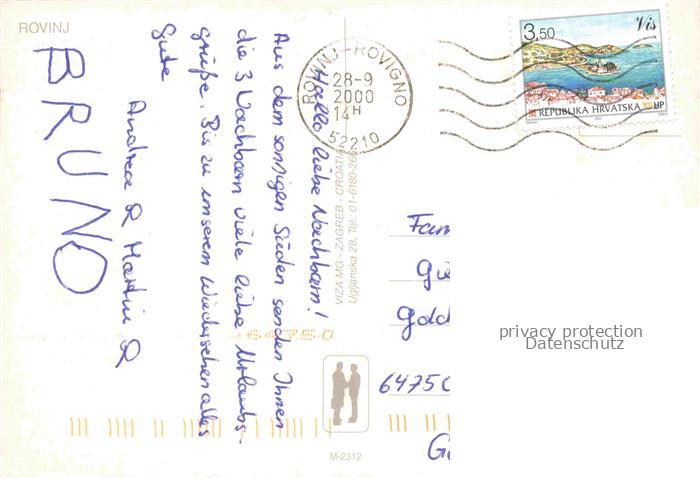 ROVINJ
Hallo liebe Nachbarn!
Aus dem sonnigen Süden senden Ihnen
die 3 Nachbarn viele liebe Urlaubs-
grüße. Bis zu unserem Wiedersehen alles
Gute
Andrea & Martin &
BRUNO
VIZA MG - ZAGREB - CROATIA
Ugljanska 28, Tel. 01-6180-26
ROVINJ-ROVIGNO
28-9
2000
14H
52210
3,50
Vis
REPUBLIKA HRVATSKA HP
Fam
Gie
Gold
6475
G
64750
privacy protection
Datenschutz
M-2312